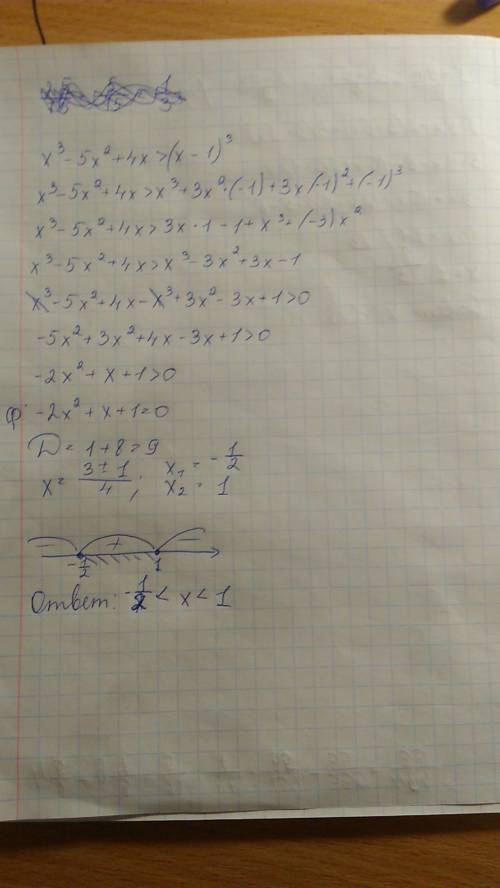 x³ - 5x² + 4x > (x - 1)³
x³ - 5x² + 4x > x³ + 3x² · (-1) + 3x(-1)² + (-1)³
x³ - 5x² + 4x > 3x · 1 - 1 + x³ + (-3)x²
x³ - 5x² + 4x > x³ - 3x² + 3x - 1
x³ - 5x² + 4x - x³ + 3x² - 3x + 1 > 0
-5x² + 3x² + 4x - 3x + 1 > 0
-2x² + x + 1 > 0
Ф: -2x² + x + 1 = 0
D = 1 + 8 = 9
x = (3 ± 1)/4 ; x₁ = -1/2
x₂ = 1
- + -
-1/2 1
Ответ: -1/2 < x < 1